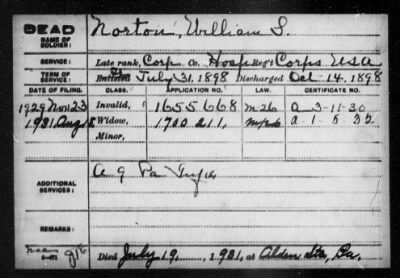 DEAD
NAME OF SOLDIER: Norton, William S.
SERVICE: Late rank, Corp Co. Hosp Reg't Corps USA
TERM OF SERVICE: Enlisted July 31, 1898 Discharged Oct 14, 1898
DATE OF FILING. CLASS. APPLICATION NO. LAW. CERTIFICATE NO.
1929 Nov 23 Invalid, 1655668 m26 a 3-11-30
1931 Aug Widow, 1700211, a 1-5-32
Minor,
ADDITIONAL SERVICES: Pa
REMARKS:
Died July 19, 1931, at Alden Sta, Pa.